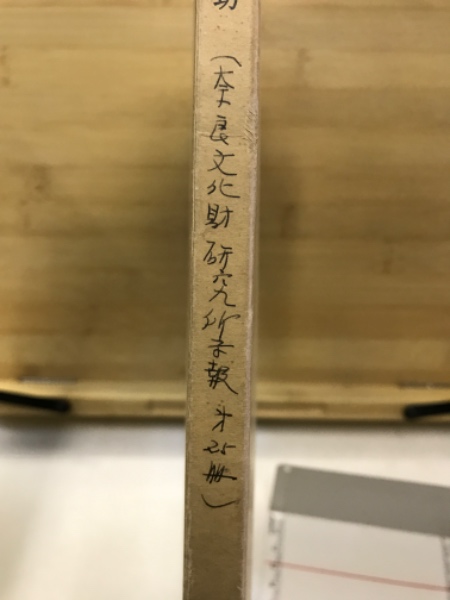 （奈良文化財研究所学報 第25冊）